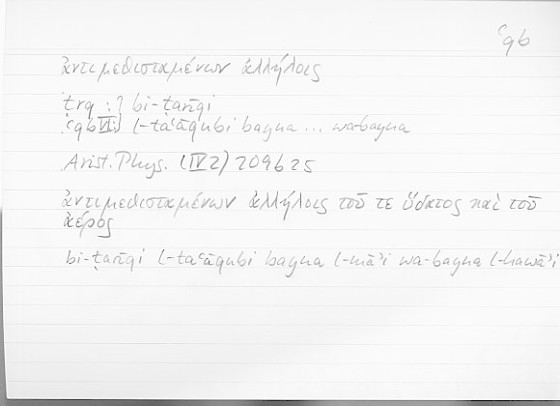 ʿqb
ἀντιμεθισταμένων ἀλλήλοις
ṭrq : ? bi-ṭarīqi
ʿqb VI: l-taʿāqubi bayna ... wa-bayna
Arist. Phys. (IV 2) 209b25
ἀντιμεθισταμένων ἀλλήλοις τοῦ τε ὕδατος καὶ τοῦ
ἀέρος
bi-ṭarīqi l-taʿāqubi bayna l-māʾi wa-bayna l-hawāʾi